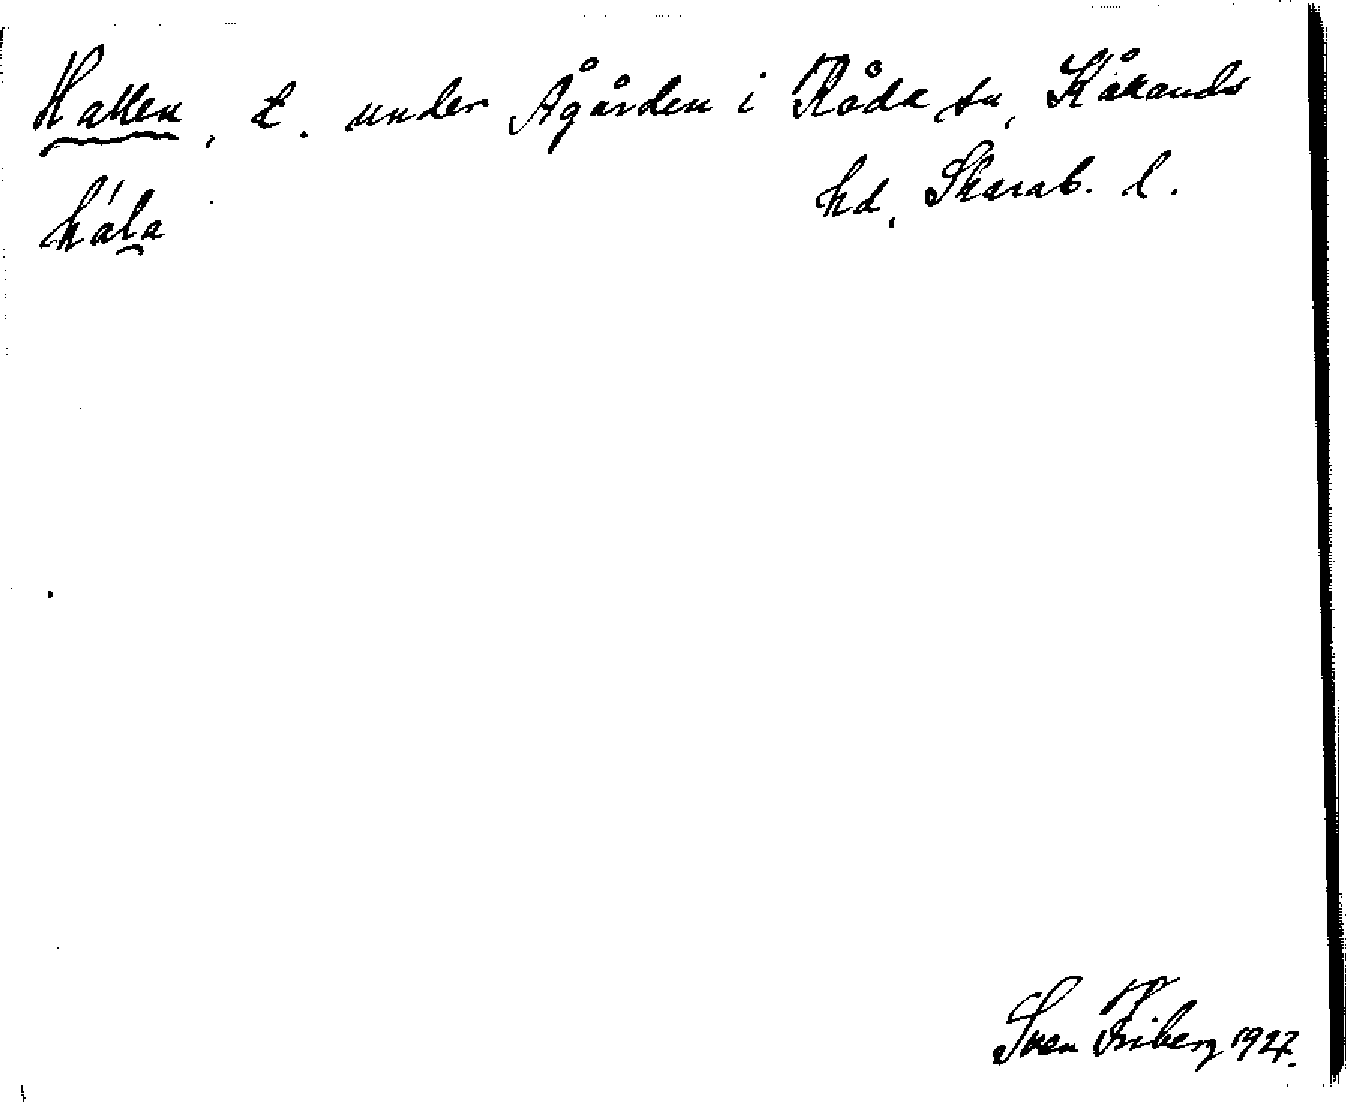 Hallen, t. under Ågården i Råda sn, Kåkands
hd, Skarab. l.
hála
Sven Friberg 1927.